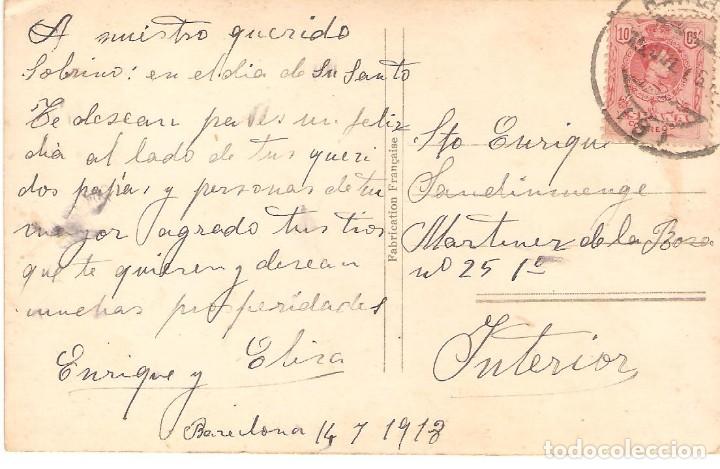 A nuestro querido
Sobrino: en el dia de Su Santo
Te desean pases un feliz
dia al lado de tus queri
dos papas, y personas de tu
mayor agrado tus tios
que te quieren y desean
muchas prosperidades
Enrique y Elisa
Barcelona 14 7 1913
Fabrication Française
10 Cs
Sto Enrique
Martinez de la Rosa
nº 25 1º
Interior
todocoleccion.net